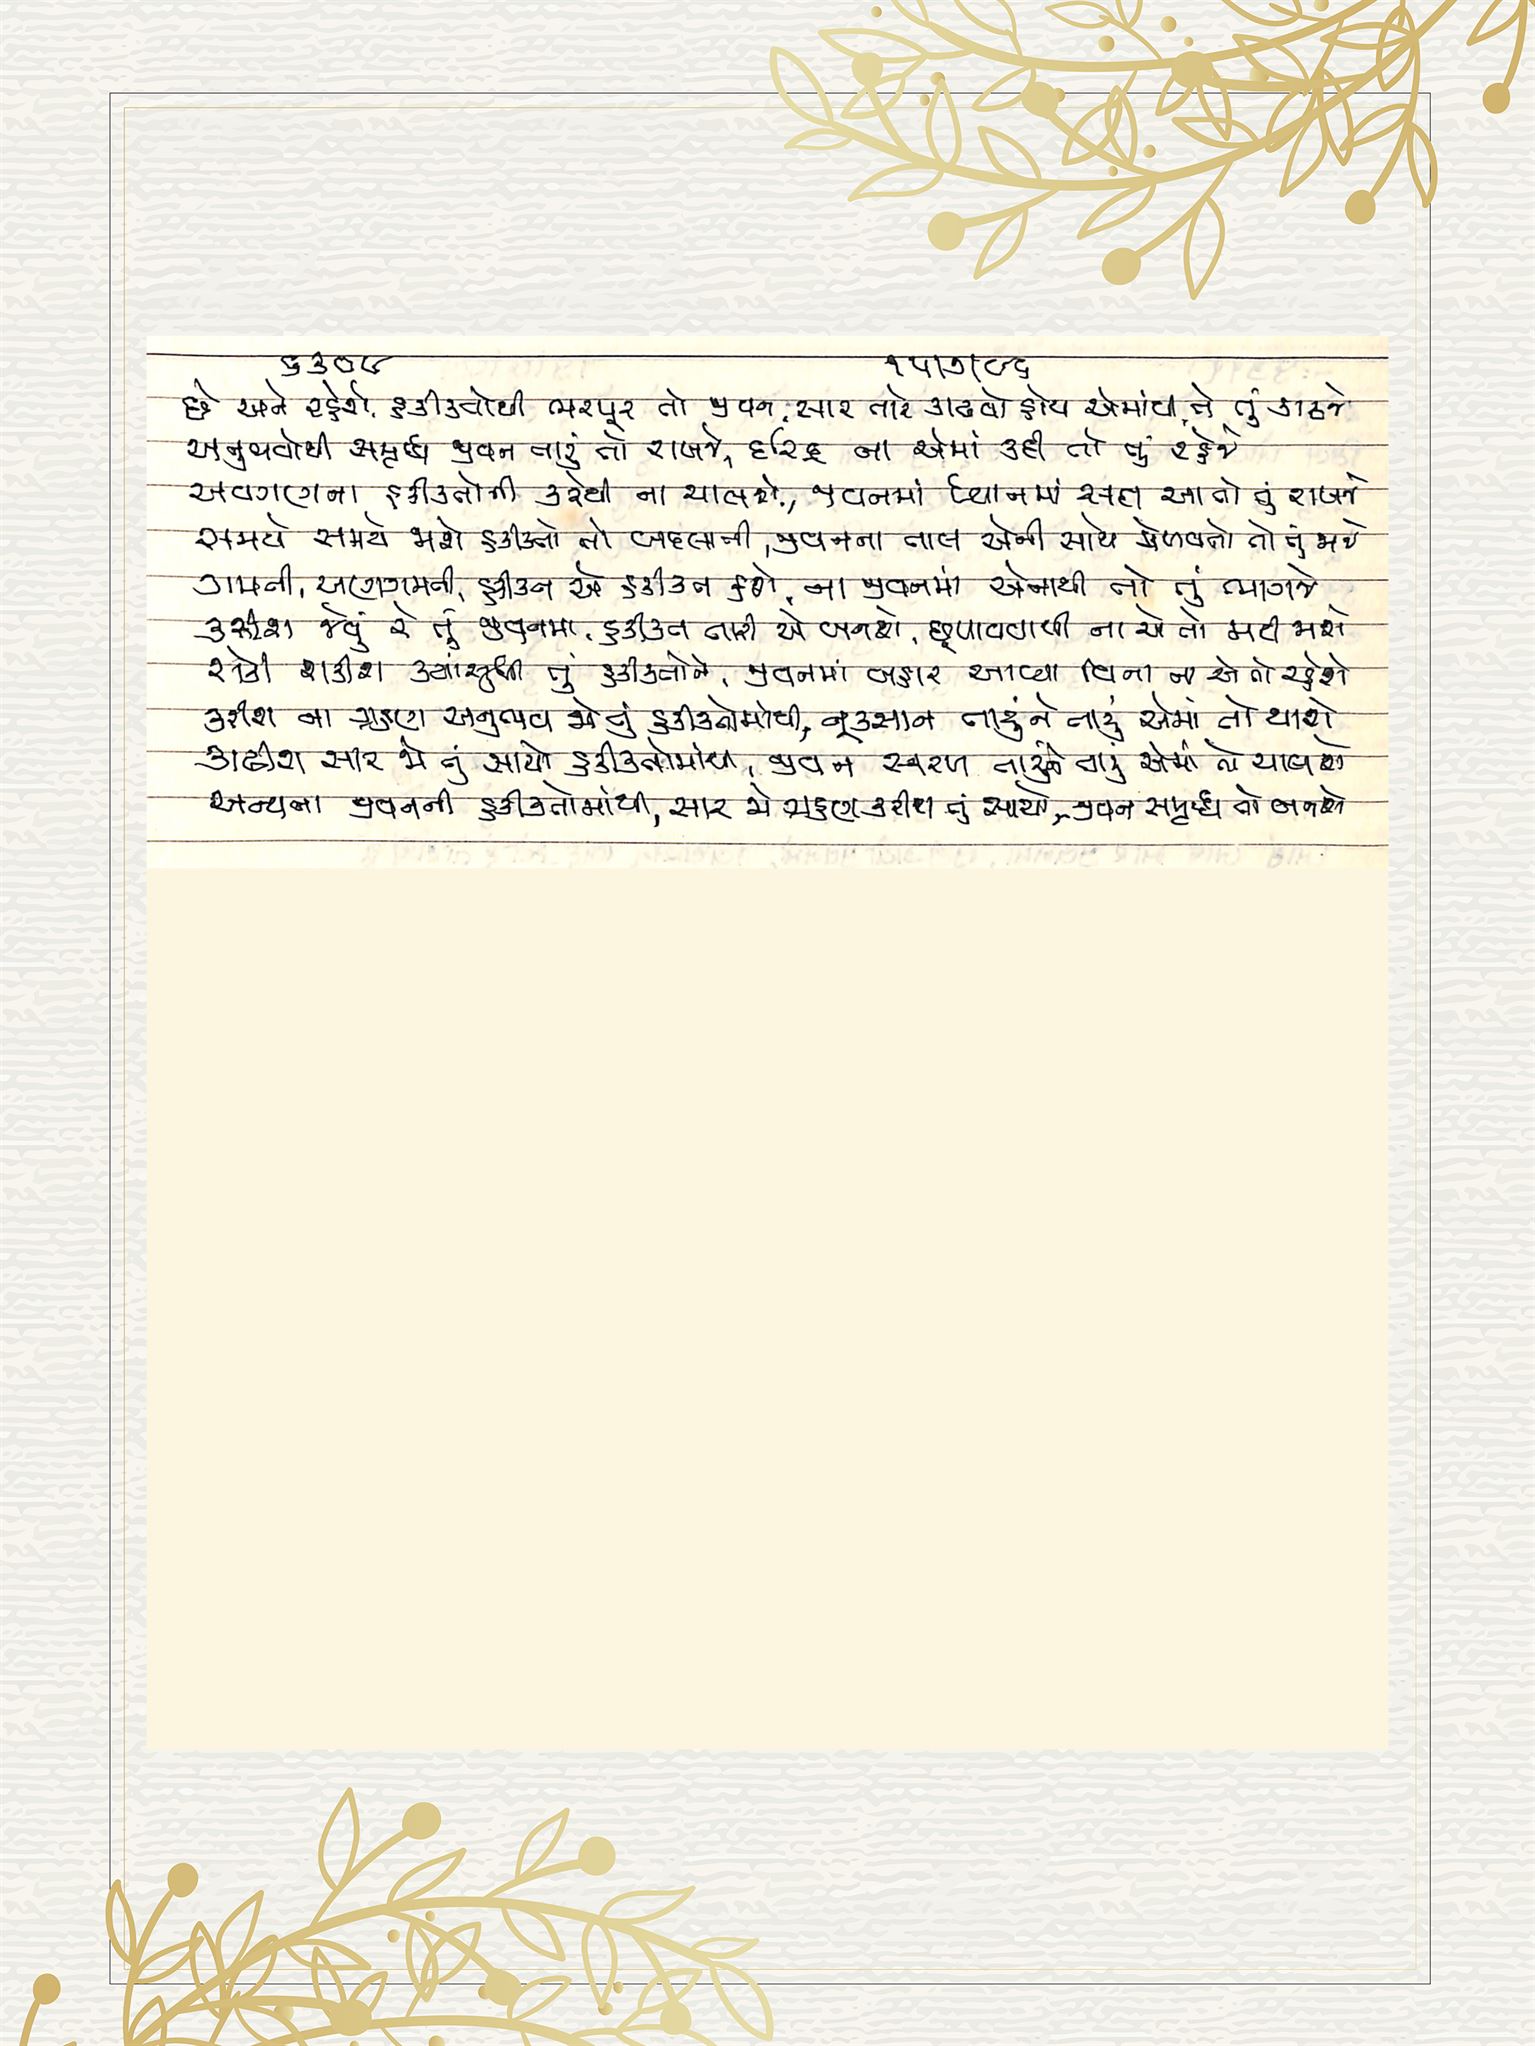 ૬૩૦૮ ૧૫/૭/૯૬
છે અને રહેશે, હકીકતોથી ભરપૂર તો જીવન, સાર તારે કાઢવો હોય એમાંથી, તે તું કાઢજે
અનુભવોથી સમૃદ્ધ જીવન તારું તો રાખજે, દરિદ્ર ના એમાં કદી તો તું રહેજે
અવગણના હકીકતોની કરેથી ના ચાલશે, જીવનમાં ધ્યાનમાં સદા આ તો તું રાખજે
સમયે સમયે જાશે હકીકતો તો બદલાતી, જીવનના તાલ એની સાથે મેળવતો તો તું જાજે
ગમતી, અણગમતી, હકીકત એ હકીકત હશે, ના જીવનમાં એનાથી તો તું ભાગજે
કરીશ જેવું રે તું જીવનમાં, હકીકત તારી એ બનશે, છૂપાવવાથી ના એ તો મટી જાશે
રોકી શકીશ ક્યાંસુધી તું હકીકતોને, જીવનમાં બહાર આવ્યા વિના ના એ તો રહેશે
કરીશ ના ગ્રહણ અનુભવ જો તું હકીકતોમાંથી, નૂકસાન તારું ને તારું એમાં તો થાશે
કાઢીશ સાર જો તું સાચો હકીકતોમાંથી, જીવન સ્વરણ તારું ને તારું એમાં તો ચાલશે
અન્યના જીવનની હકીકતોમાંથી, સાર જો ગ્રહણ કરીશ તું સાચો, જીવન સમૃદ્ધ તો બનશે